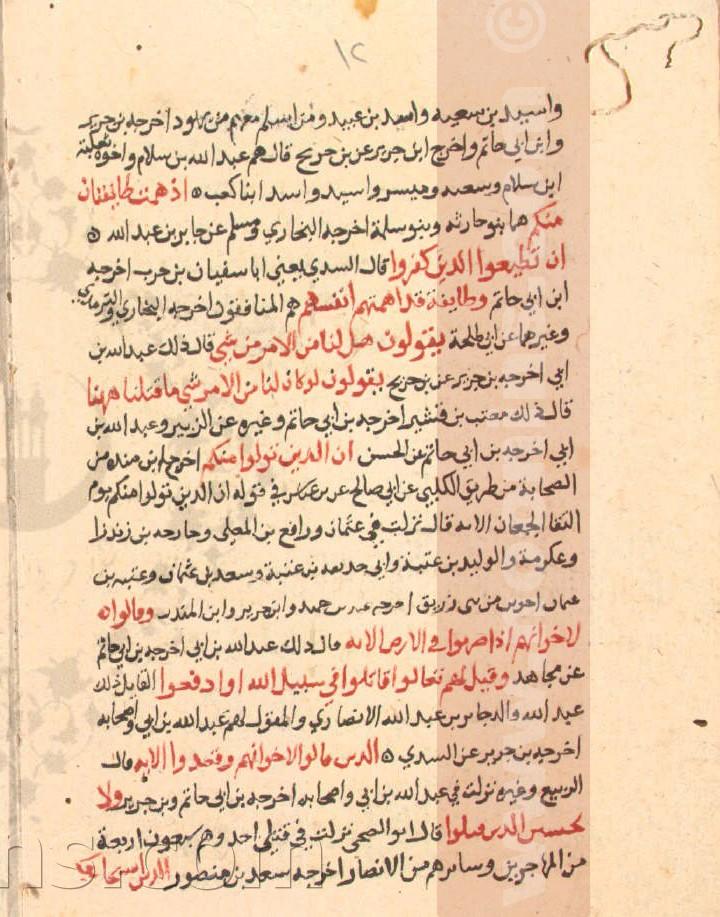 ١٢
واسيد بن سعيه واسد بن عبيد ومن اسلم معهم من يهود اخرجه بن جرير
وابن ابي حاتم واخرج ابن جرير عن بن جريج قال هم عبد الله بن سلام واخوه ثعلبة
ابن سلام وسعيه وميسر واسيد واسد ابنا كعب ه اذ همت طايفتان
منكم هما بنو حارثه وبنو سلمة اخرجه البخاري ومسلم عن جابر بن عبد الله ه
ان تطيعوا الذين كفروا قال السدي يعني ابا سفيان بن حرب اخرجه
ابن ابي حاتم وطايفة قد اهمتهم انفسهم هم المنافقون اخرجه البخاري والترمذي
وغيرهما عن ابي طلحة يقولون هل لنا من الامر من شي قال ذلك عبد الله بن
ابي اخرجه بن جرير عن بن جريج يقولون لو كان لنا من الامر شي ما قتلنا ههنا
قال ذلك معتب بن قشير اخرجه بن ابي حاتم وغيره عن الزبير وعبد الله بن
ابي اخرجه بن ابي حاتم عن الحسن ان الذين تولوا منكم اخرج بن منده من
الصحابة من طريق الكلبي عن ابي صالح عن بن عباس في قوله ان الذين تولوا منكم يوم
التقا الجمعان الايه قال نزلت في عثمان ورافع بن المعلى وخارجه بن زيد
وعكرمة والوليد بن عتبة وابي حذيفه بن عتبة وسعد بن عثمان وعتبه بن
عثمان اخوين من بني زريق اخرجه عبد بن حميد وابن جرير وابن المنذر وقالوا
لاخوانهم اذا ضربوا في الارض الايه قال ذلك عبد الله بن ابي اخرجه بن ابي حاتم
عن مجاهد وقيل لهم تعالوا قاتلوا في سبيل الله او ادفعوا القايل ذلك
عبد الله والد جابر بن عبد الله الانصاري والمقول لهم عبد الله بن ابي واصحابه
اخرجه بن جرير عن السدي ه الذين قالوا لاخوانهم وقعدوا الايه قال
الربيع وغيره نزلت في عبد الله بن ابي واصحابه اخرجه بن ابي حاتم وبن جرير ولا
تحسبن الذين قتلوا قال ابو الضحى نزلت في قتلى احد وهم سبعون اربعة
من المهاجرين وسايرهم من الانصار اخرجه سعد بن منصور الذين استجابوا